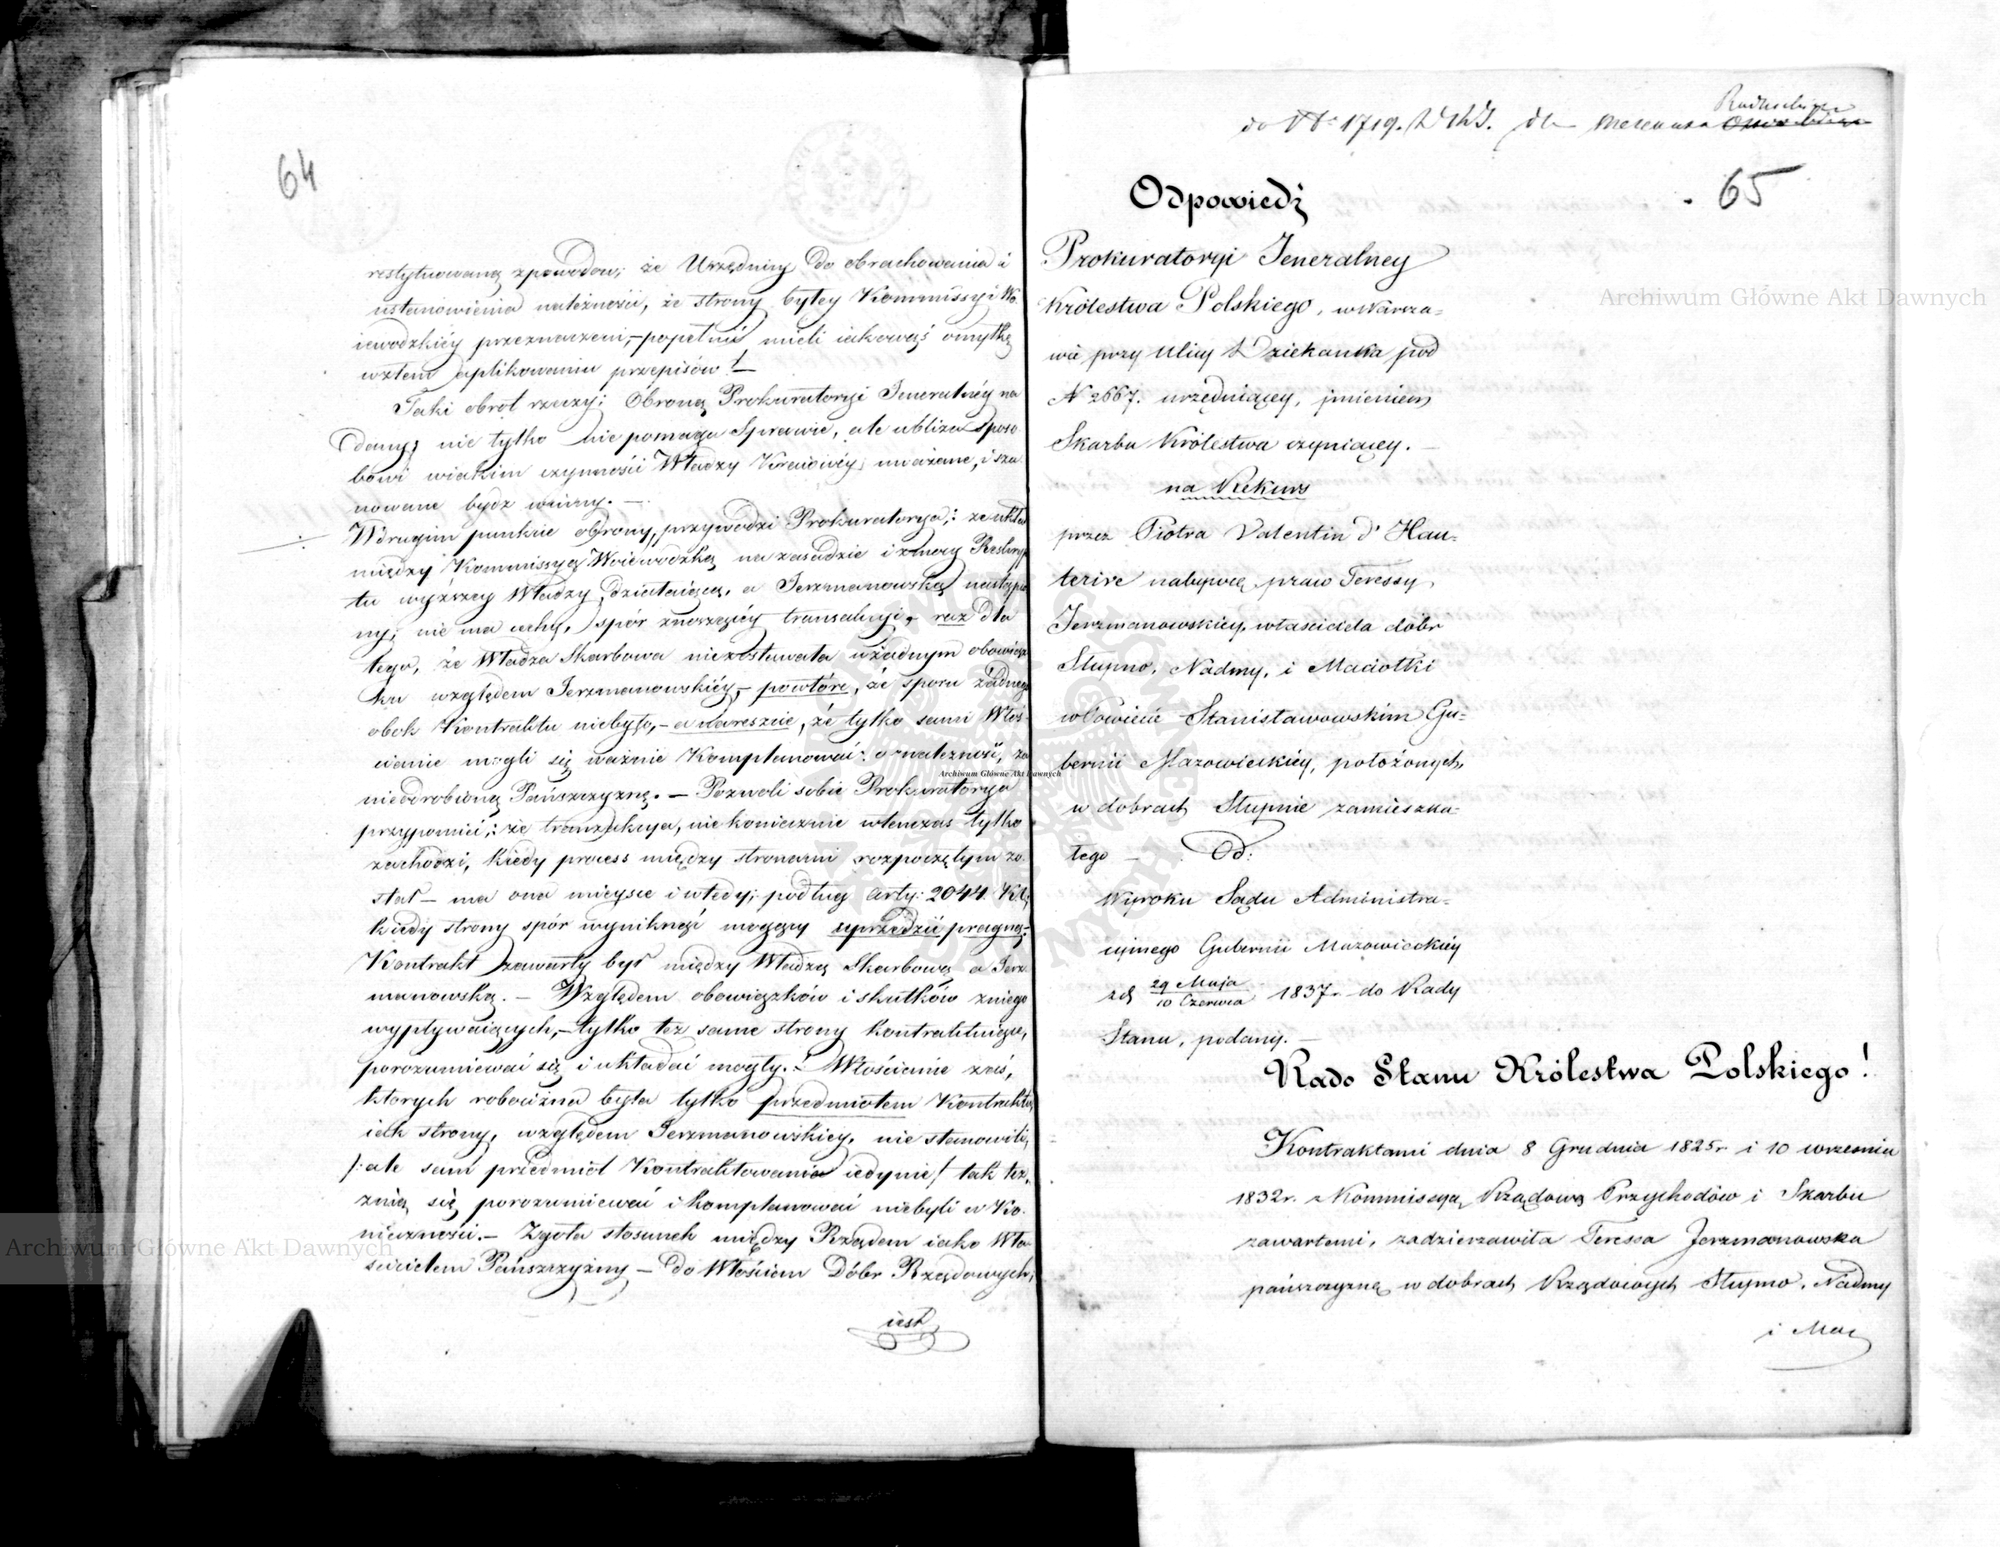 64
restytuowaną z powodou; że Urzędnicy do obrachowania i
ustanowienia należności, ze strony byłey Kommissyi Wo-
iewodzkiey przeznaczeni, – popełnić mieli iakowąś omyłkę
w tem aplikowaniu przepisów! –
Taki obrot rzeczy; Obroną Prokuratoryi Jeneralnéy na
dany; nie tylko nie pomaga Sprawie, ale ubliża sposo-
bowi w iakim czynności Władzy Kraiowéy uważane, i sza-
nowane bydz winny. –
W drugim punkcie obrony, przywodzi Prokuratorya; że układ
między Kommissyą Woiewodzką na zasadzie i z mocy Reskryp-
tu wyższey Władzy działaiącą, a Jerzmanowską nastąpio-
ny; nie ma cechy, spór znoszącéy transakcyi, raz dla
tego, że Władza Skarbowa niezostawała w żadnym obowiąz-
ku względem Jerzmanowskiéy, – powtóre, że sporu żadnego
obok Kontraktu niebyło, – a nareszcie, że tylko sami Włoś-
cianie mogli się ważnie Komplanować: o należność, za
nieodrobioną Pańszczyznę. – Pozwoli sobie Prokuratorya
przypomnieć; że tranzakcya, nie koniecznie wtenczas tylko
zachodzi, kiedy process między stronami rozpoczętym zo-
stał – ma ona mieysce i wtedy; podług Arty: 2044. K.C.
kiedy strony spór wyniknąć mogący uprzedzić pragną.
Kontrakt zawarty był między Władzą Skarbową a Jerz-
manowską. – Względem obowiązków i skutków z niego
wypływaiących, – tylko też same strony kontraktuiące,
porozumiewać się i układać mogły. – Włościanie zaś,
ktorych robocizna była tylko przedmiotem Kontraktu,
iak strony, względem Jerzmanowskiey, nie stanowili,
/: ale sam przedmiot Kontraktowania iedynie / tak też,
z nią się porozumiewać i komplanować niebyli w Ko-
nieczności. – Zgoła stosunek między Rządem iako Wła-
ścicielem Pańszczyzny – do Włościan Dóbr Rządowych,
iest
do No 1719. dla Mecenasa
65
Odpowiedź
Prokuratoryi Jeneralney
Królestwa Polskiego, w Warsza-
wie przy Ulicy Dziekanka pod
No 2667. urzęduiącey, jmieniem
Skarbu Królestwa czyniącey. –
na Rekurs
przez Piotra Valentin d'Hau-
terive nabywcę praw Teressy
Jerzmanowskiey, właściciela dóbr
Słupno, Nadmy, i Maciołki
w Powiecie Stanisławowskim Gu-
bernii Mazowieckiey, położonych,
w dobrach Słupnie zamieszka-
łego – Od:
Wyroku Sądu Administra-
cyinego Gubernii Mazowieckiey
z d. 29 Maja / 10 Czerwca 1837 r. do Rady
Stanu, podany. –
Rado Stanu Królestwa Polskiego!
Kontraktami dnia 8 Grudnia 1825 r i 10 wrzesnia
1832 r. z Kommissyą Rządową Przychodów i Skarbu
zawartemi, zadzierzawiła Teressa Jerzmanowska
pańszczyznę w dobrach Rządowych Słupno, Nadmy
i Mac
Archiwum Główne Akt Dawnych
Archiwum Główne Akt Dawnych
Archiwum Główne Akt Dawnych